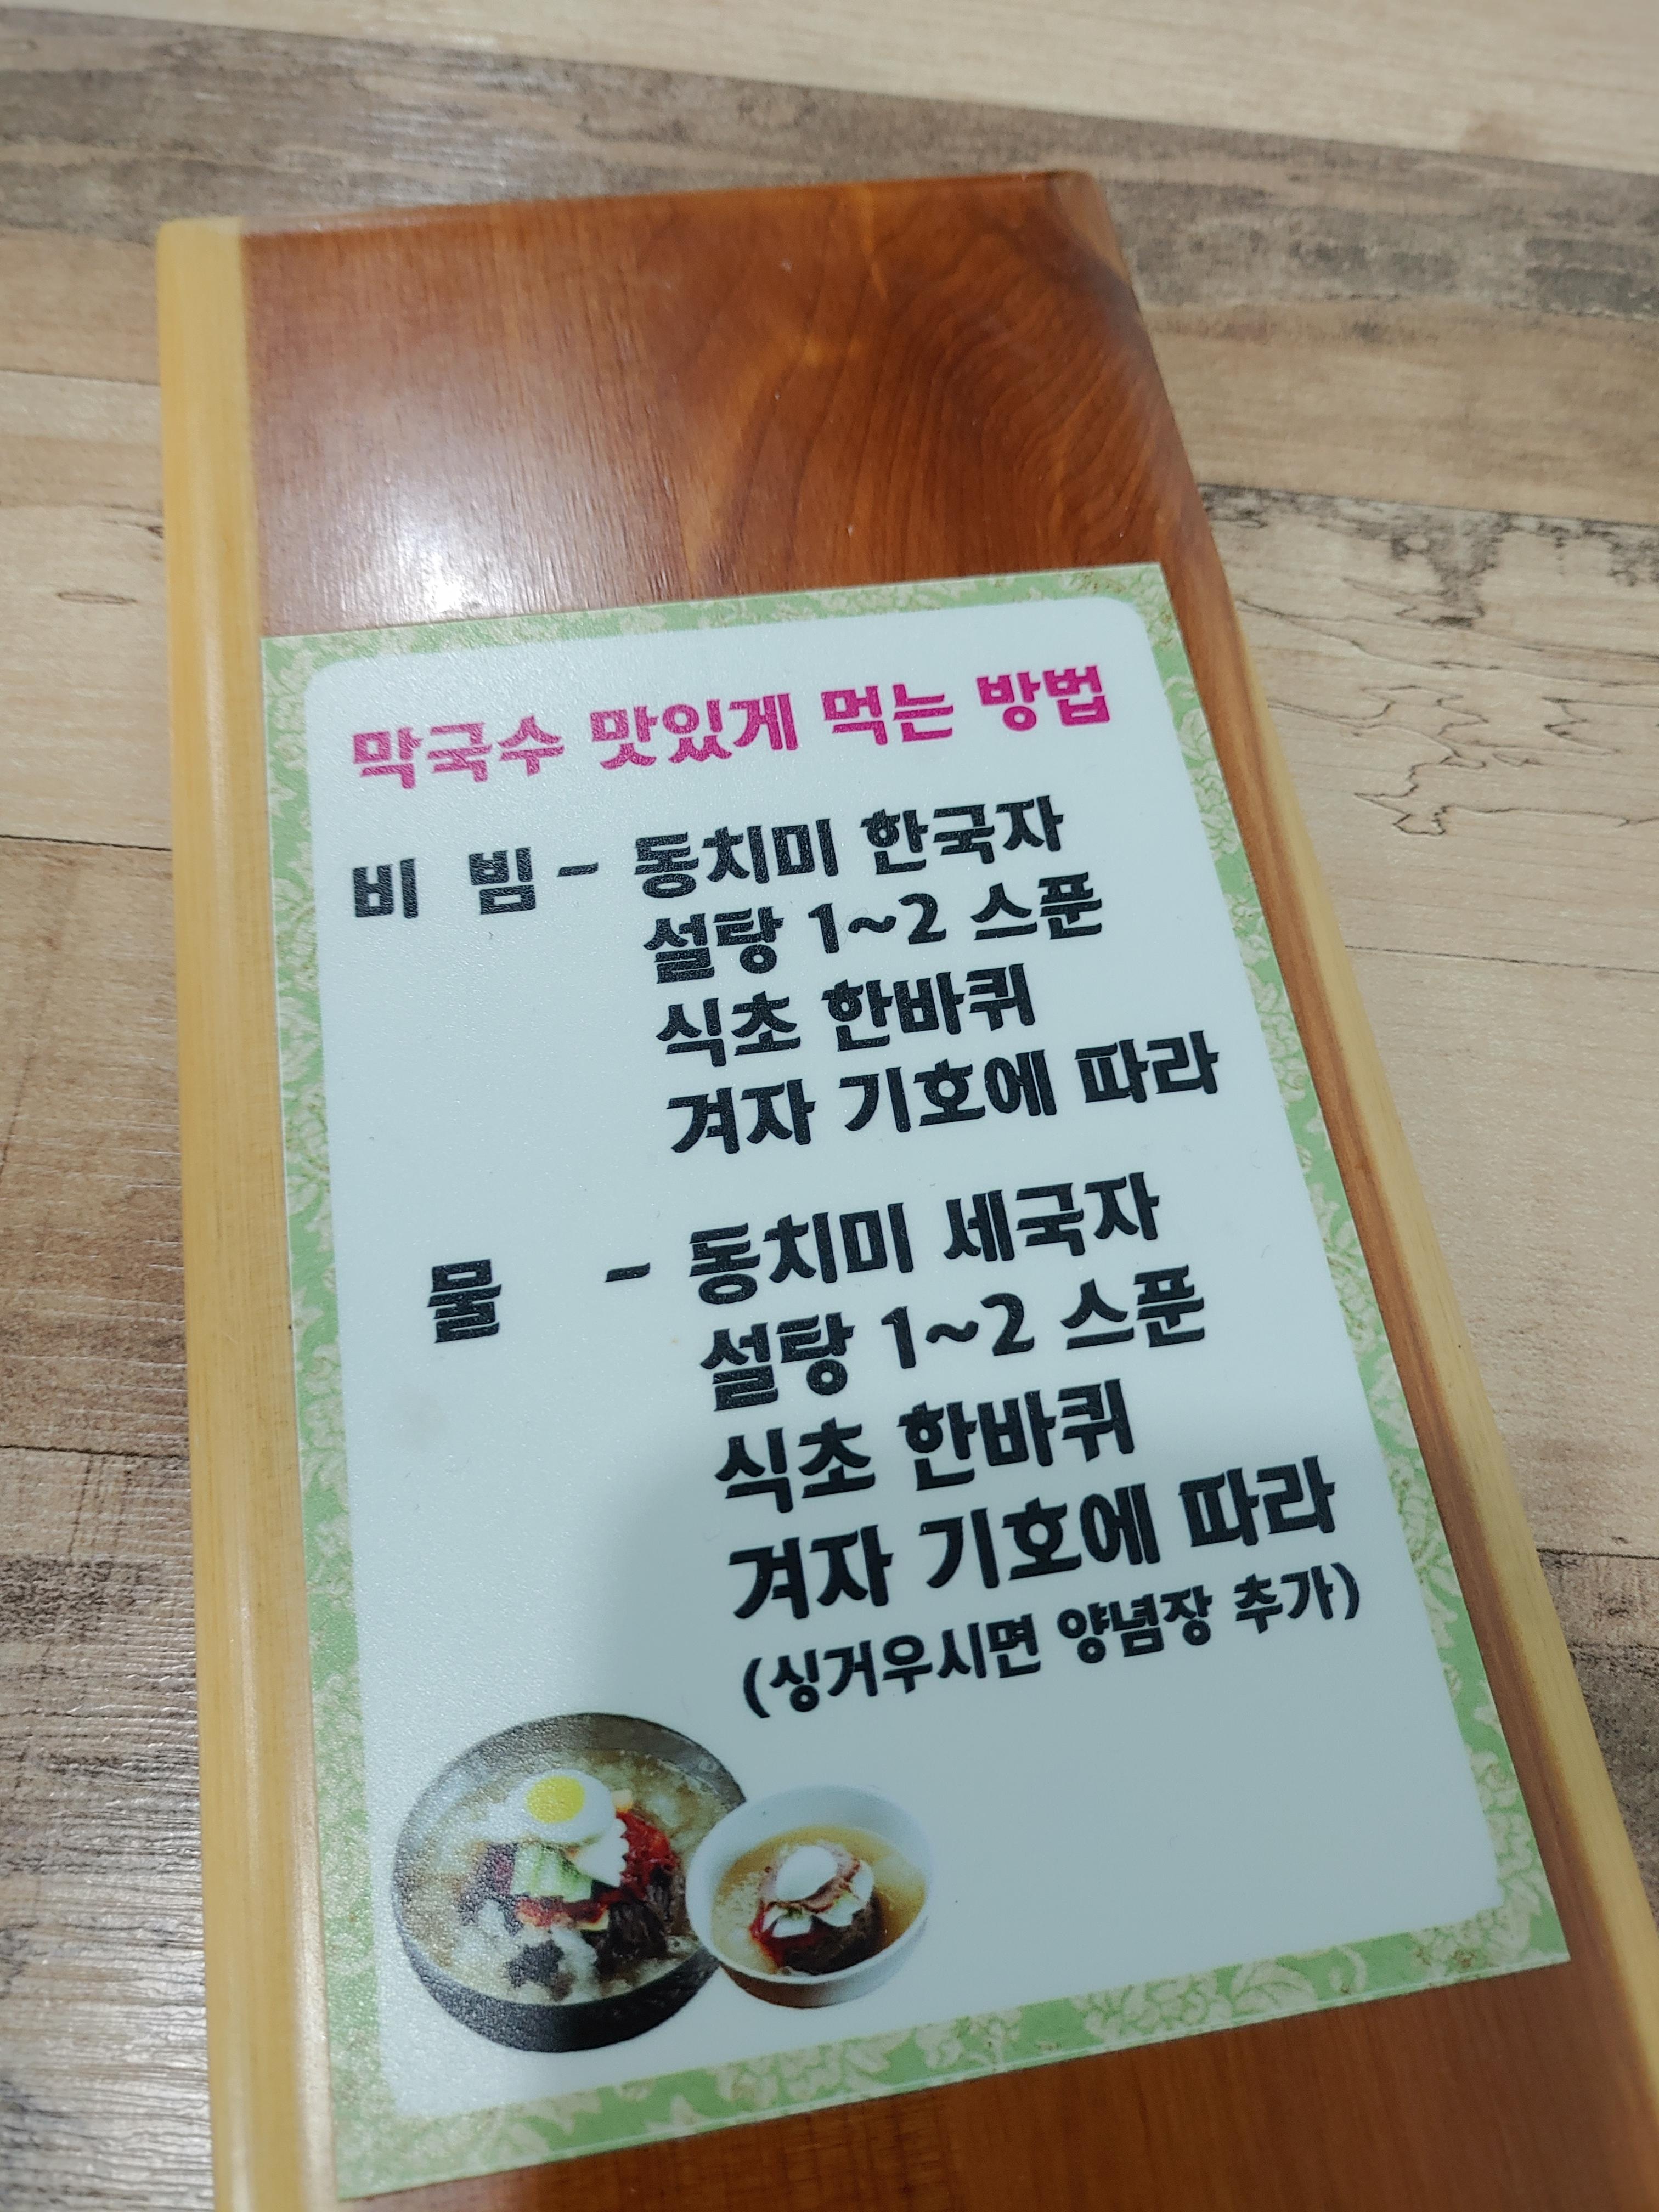 막국수 맛있게 먹는 방법
비 빔 - 동치미 한국자
설탕 1~2 스푼
식초 한바퀴
겨자 기호에 따라
물 - 동치미 세국자
설탕 1~2 스푼
식초 한바퀴
겨자 기호에 따라
(싱거우시면 양념장 추가)